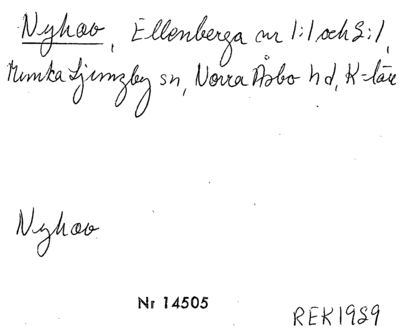 Nyhov, Ellenberga nr 1:1 och 2:1,
Munka Ljungby sn, Norra Åsbo hd, K-län
Nyhov
Nr 14505
REK1929